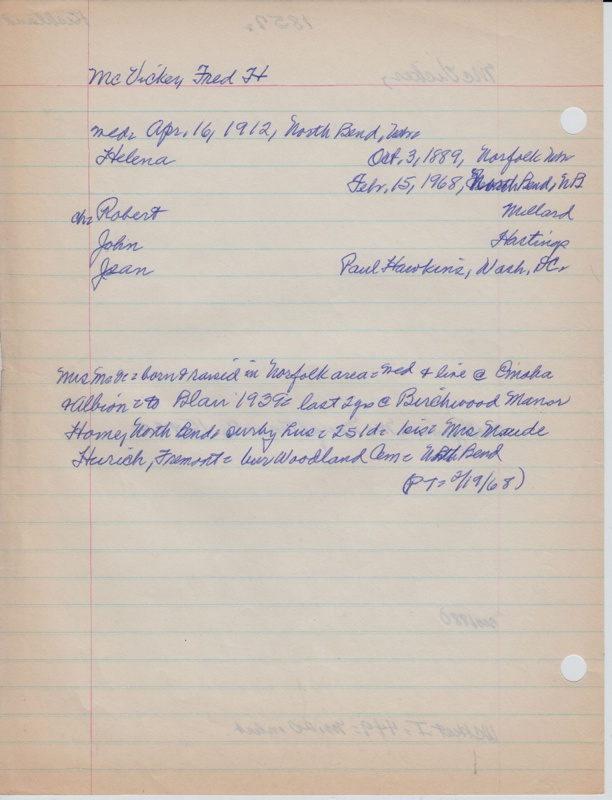 McVickey, Fred H
med: Apr. 16, 1912, North Bend,
Helena Oct. 3, 1889, Norfolk
Febr. 15, 1968, North Bend, NB
ch: Robert Millard
John Hastings
Jean Paul Hawkins, Wash. DC.
Mrs McV = born & raised in Norfolk area = med & live @ Omaha
& Albion = to Blair 1939 = last 2 yrs @ Birchwood Manor
Home, North Bend = surv by hus = 2s 1d = 1sis = Mrs Maude
Hurich, Fremont = bur Woodland Cem = North Bend
(PT = 2/19/68)